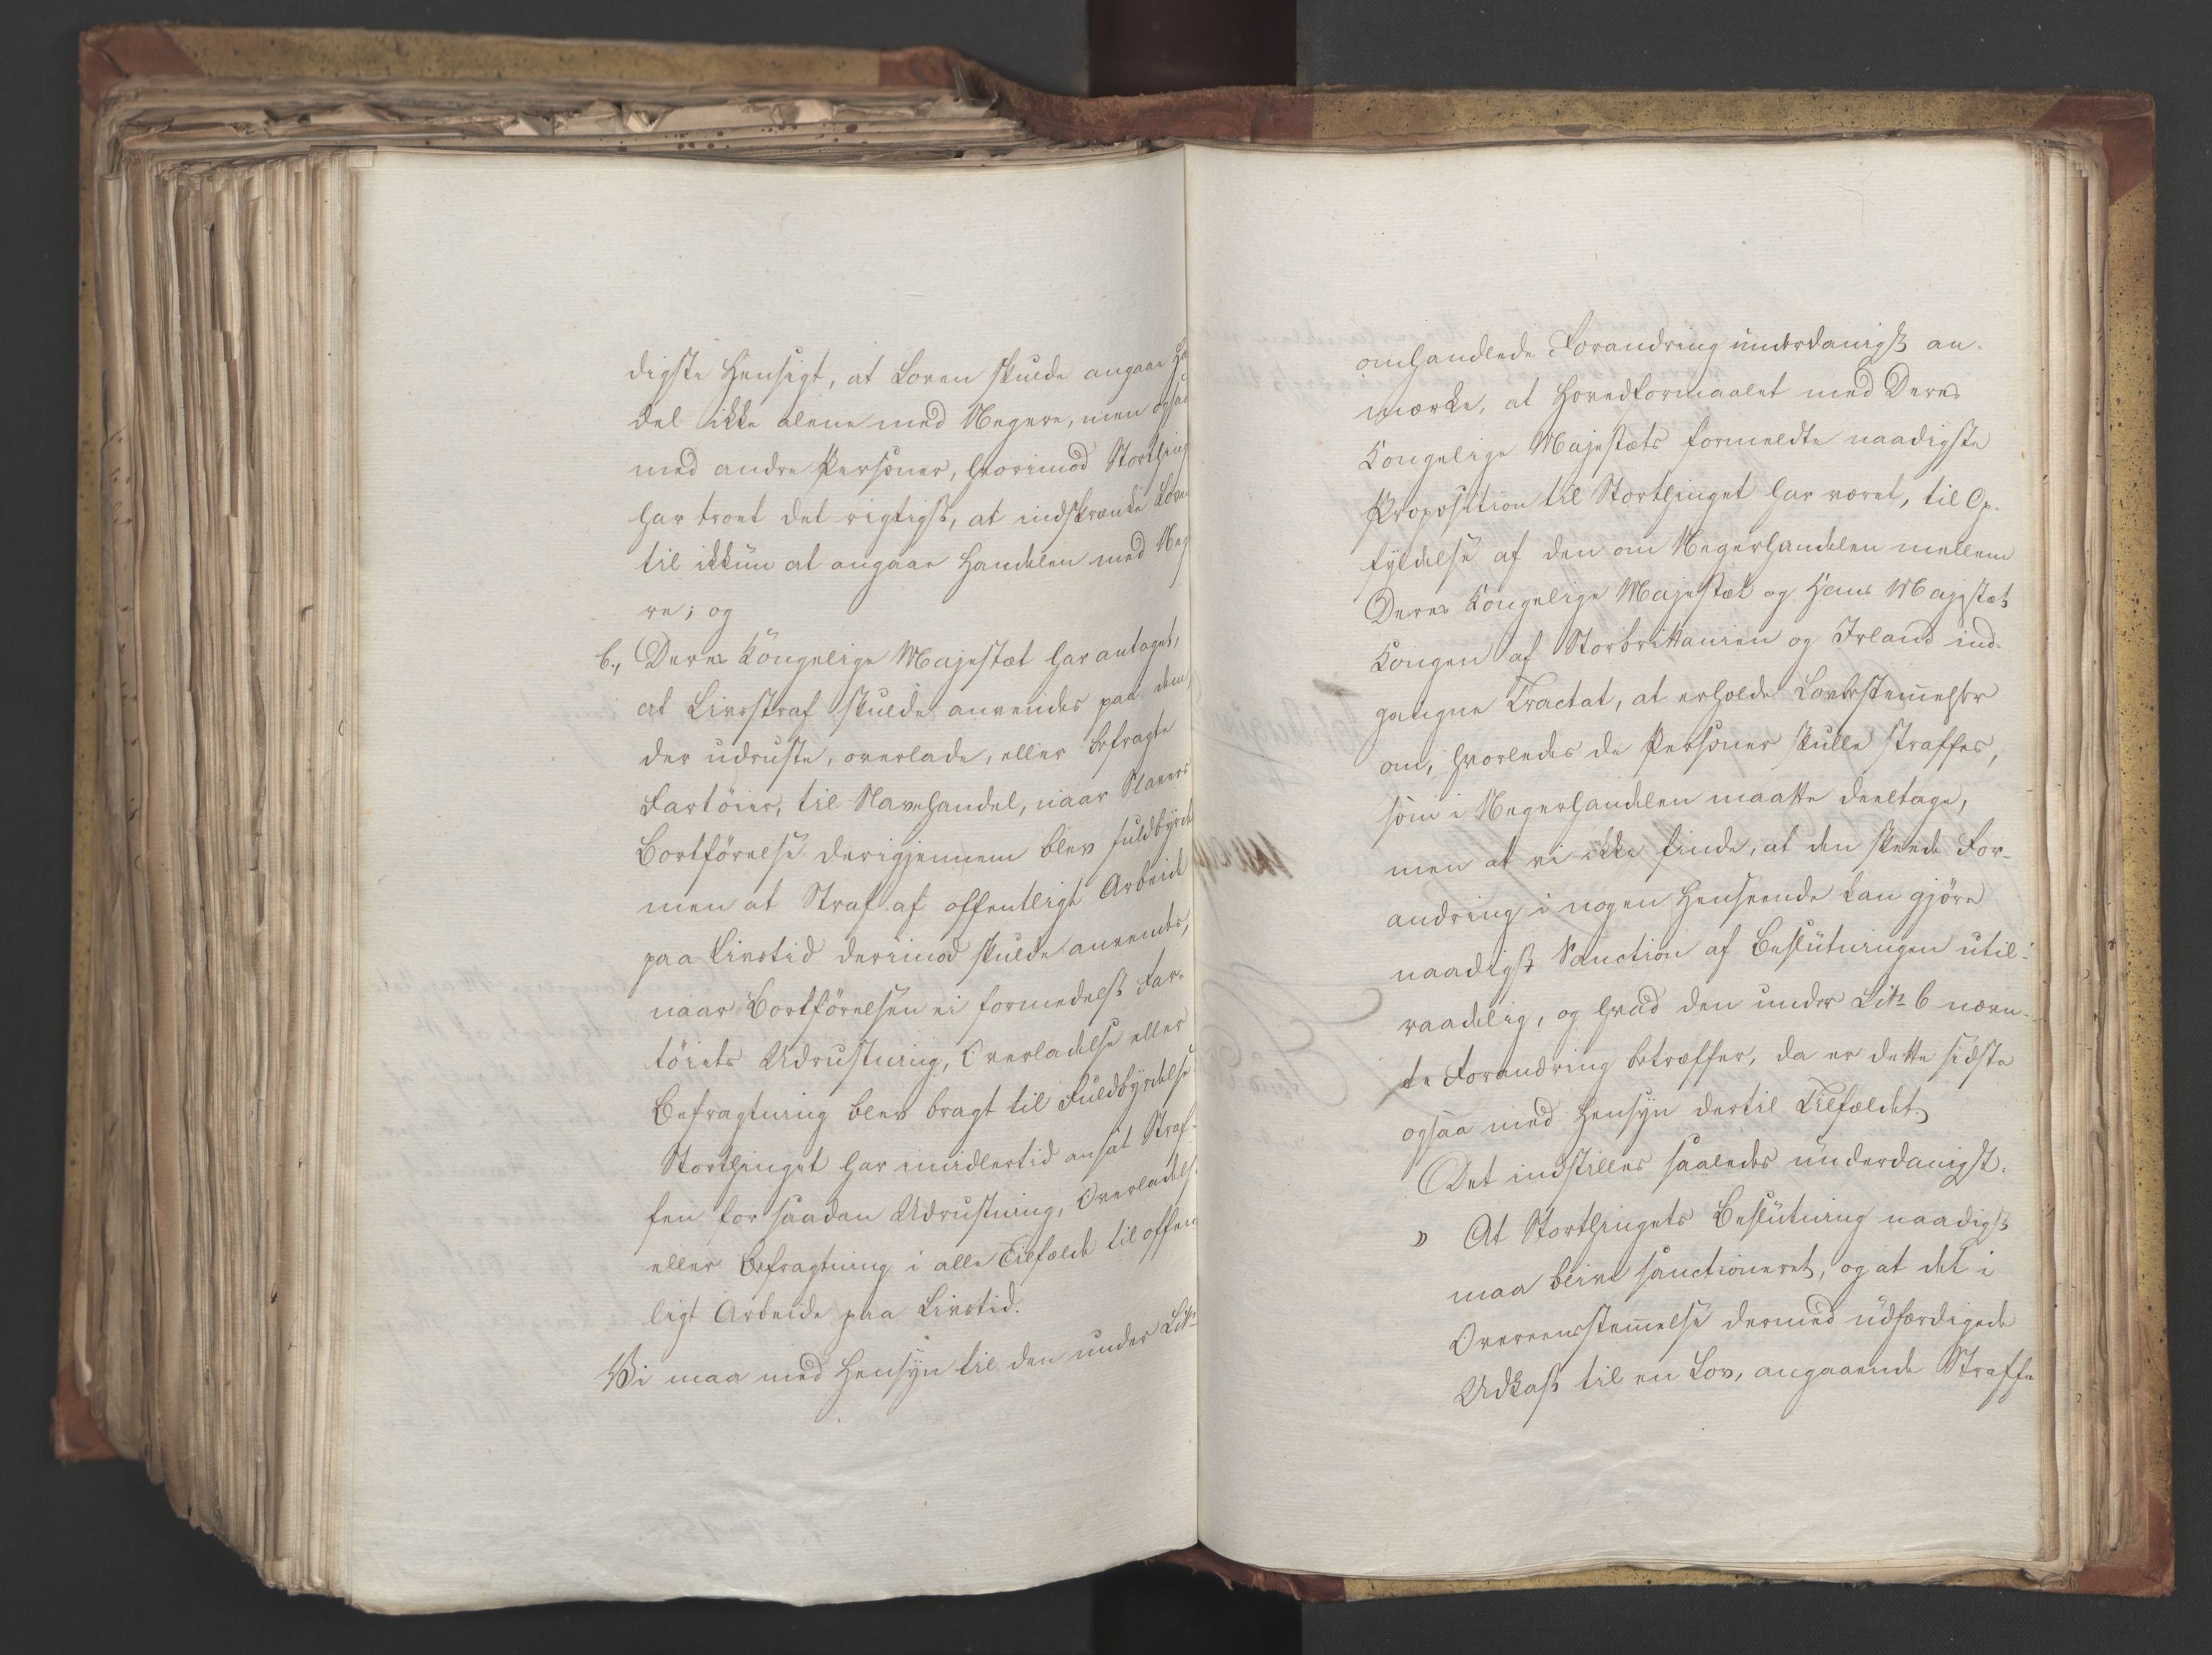 digste Hensigt, at Loven skulde angaae Ha
del ikke alene med Negere, men ogsaa
med andre Personer, hvorimod Storthing
har troet det rigtigst, at indskrænke Loven
til ikkun at angaae Handelen med Neg
re; og
b., Deres Kongelige Majestæt har antaget,
at Livsstraf skulde anvendes paa dem,
der udruste, overlade, eller befragte
Fartöier, til Slavehandel, naar Slavers
Bortförelse derigjennem blev fuldbyrdet
men at Straf af offentligt Arbeide
paa Livstid derimod skulde anvendes,
naar Bortförelsen ei formedelst Far-
töiets Udrustning, Overladelse eller
Befragtning blev bragt til Fuldbyrdelse
Storthinget har imidlertid ansat Straf-
fen for saadan Udrustning, Overladels
eller Befragtning i alle Tilfælde til offen
ligt Arbeide paa Livstid.
Vi maa med Hensyn til den under Litr
omhandlede Forandring underdanigst an-
mærke, at Hovedformaalet med Deres
Kongelige Majestæts formeldte naadigste
Proposition til Storthinget har været, til Op-
fyldelse af den om Negerhandelen mellem
Deres Kongelige Majestæt og Hans Majestæt
Kongen af Storbrittanien og Irland ind-
gangne Tractat, at erholde Lovbestem̄elser
om, hvorledes de Personer skulle straffes,
som i Negerhandelen maatte deeltage,
men at vi ikke finde, at den skeede For-
andring i nogen Henseende kan gjöre
naadigst Sanction af Beslutningen util-
raadelig, og hvad den under Litr b nævn-
te Forandring betræffer, da er dette sidste
ogsaa med Hensyn dertil Tilfældet.
Det indstilles saaledes underdanigst:
" At Storthingets Beslutning naadigst
maa blive sanctioneret, og at det i
Overeensstem̄else dermed udfærdigede
Udkast til en Lov, angaaende Straffe